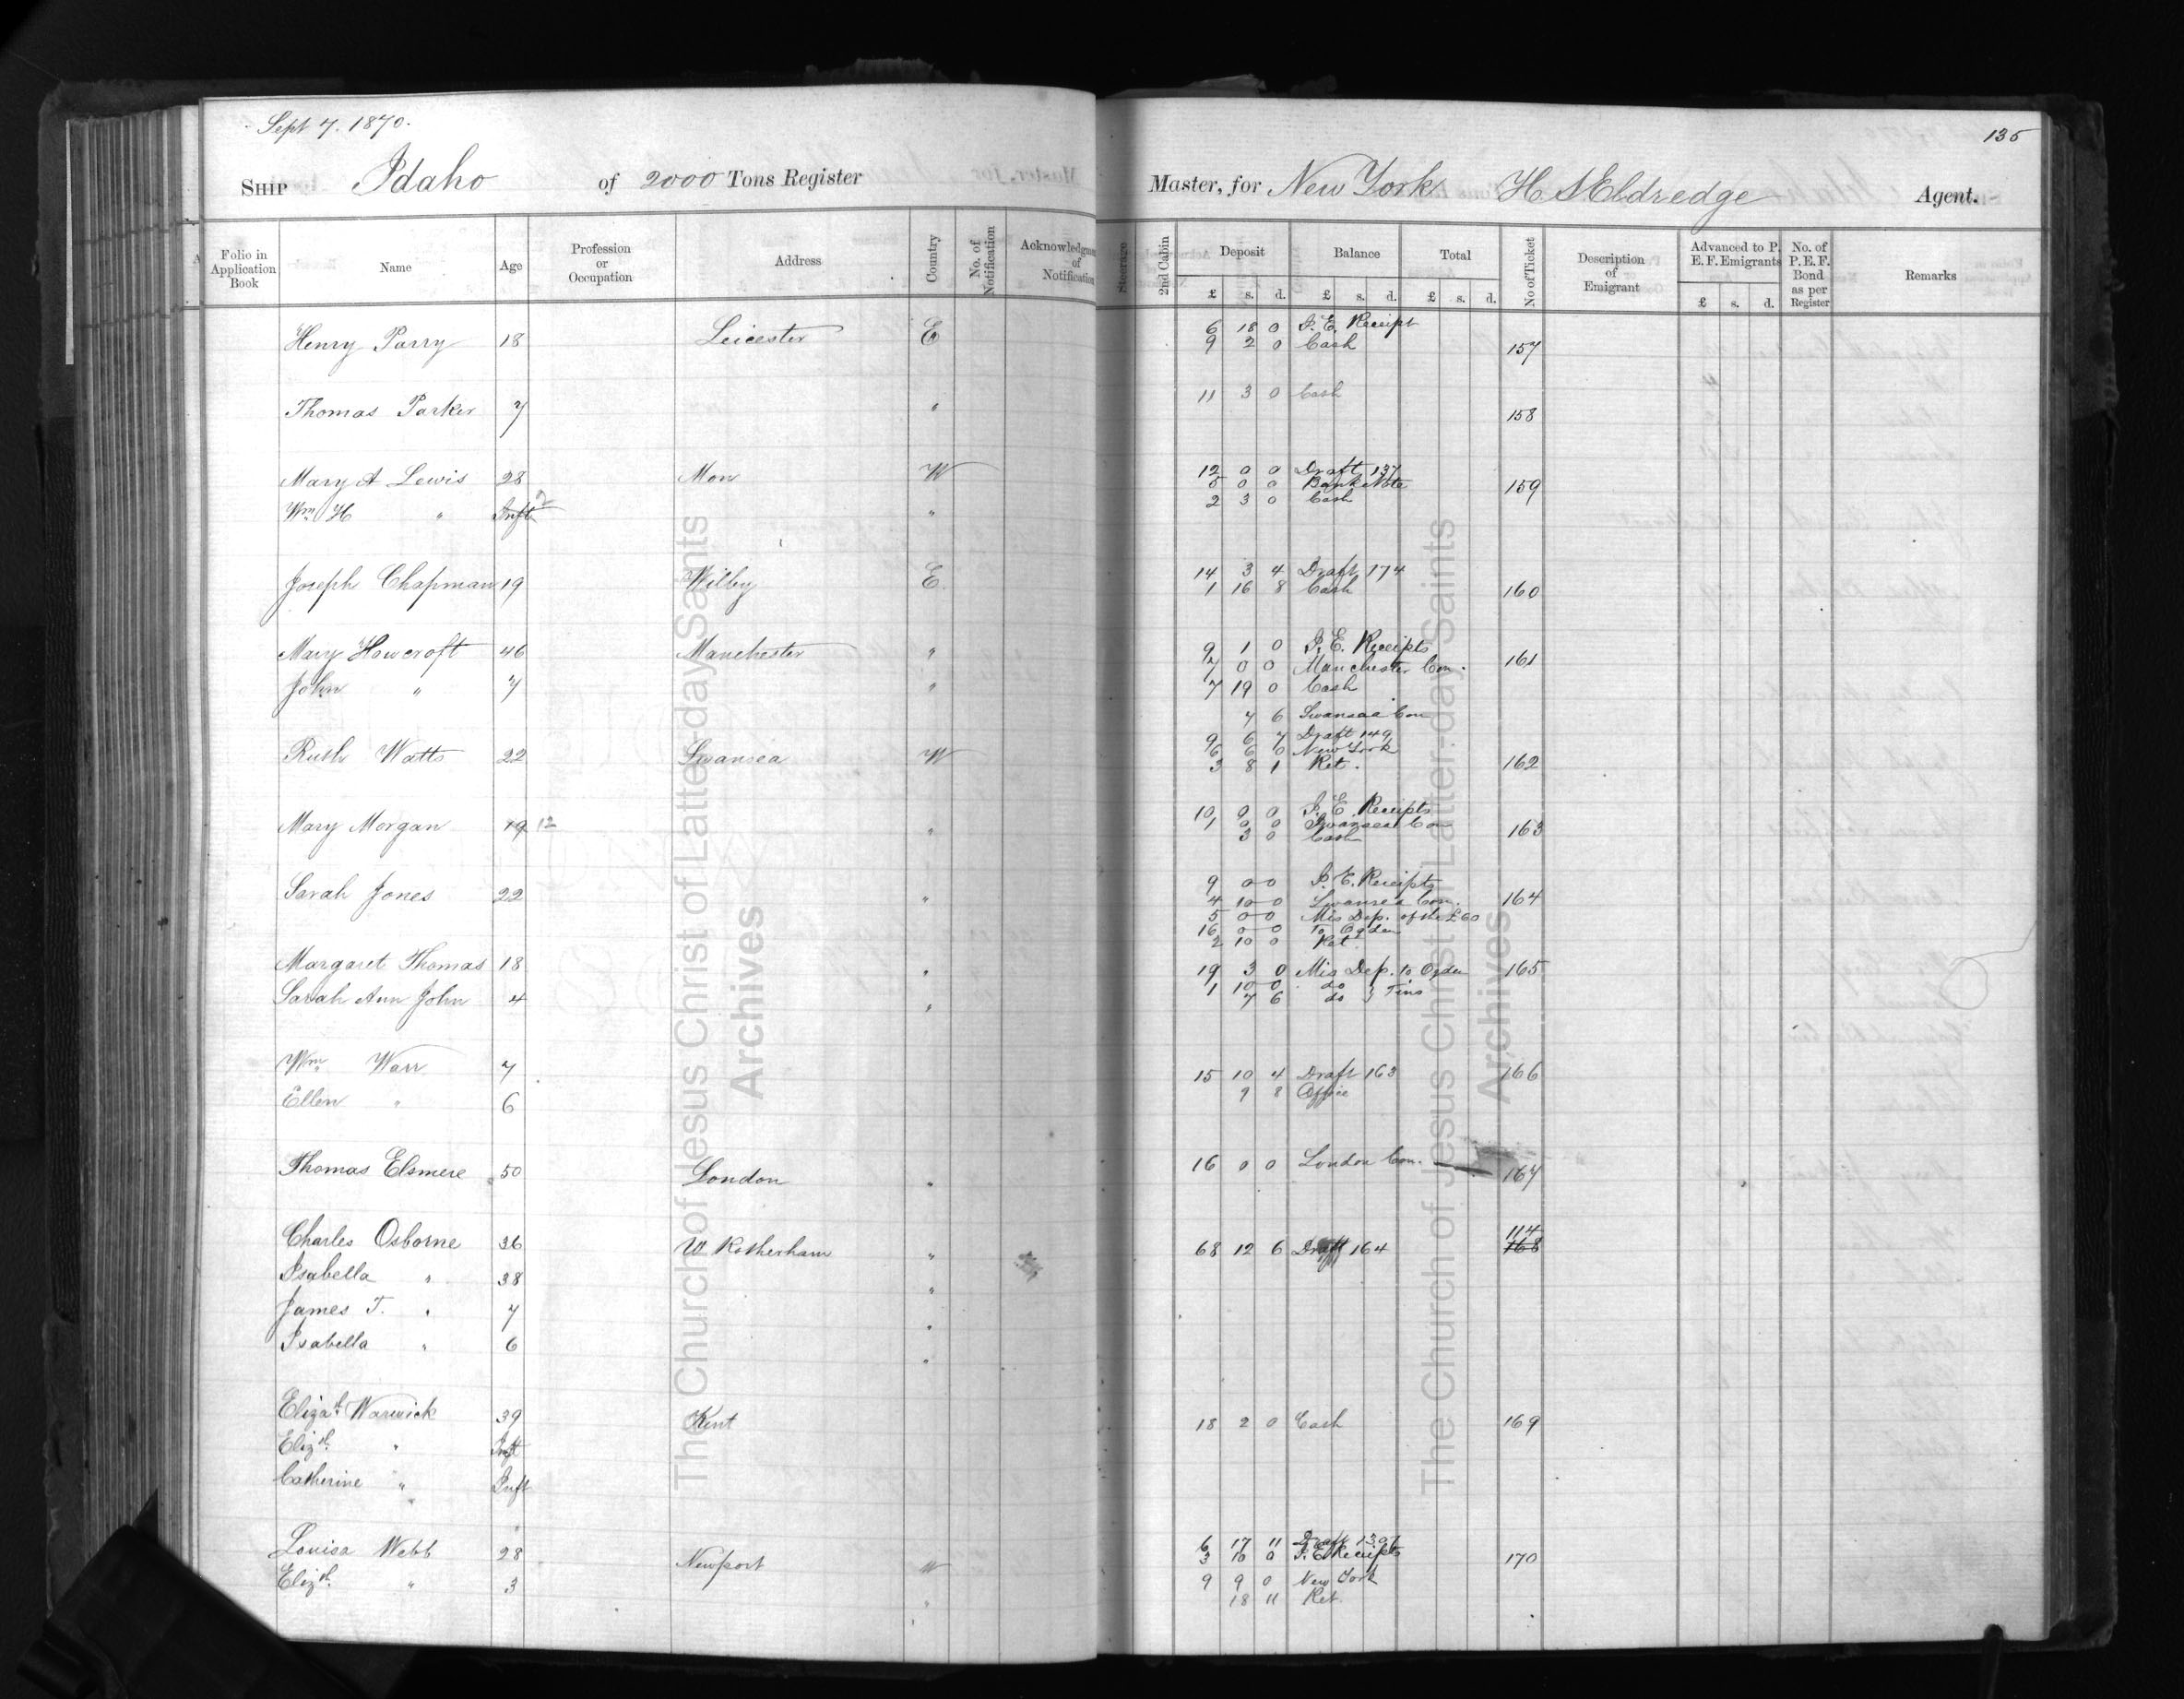 Sept 7. 1870.
135
Ship Idaho of 2000 Tons Register Master, for New York H. S. Eldredge Agent.
Folio in Application Book | Name | Age | Profession or Occupation | Address | Country | No. of Notification | Acknowledgment of Notification | Steerage | 2nd Cabin | Deposit £ s. d. | Balance £ s. d. | Total £ s. d. | No of Ticket | Description of Emigrant | Advanced to P. E. F. Emigrants £ s. d. | No. of P. E. F. Bond as per Register | Remarks
Henry Parry 18 Leicester E 6 18 0 I. E. Receipt
9 2 0 Cash 157
11 3 0 Cash
Thomas Parker 7 " 158
Mary A Lewis 28 Mon W 12 0 0 Draft 137
5 0 0 Bank Note 159
Wm H " Inft 2 " 2 3 0 Cash
Joseph Chapman 19 Wilby E. 14 3 4 Draft 174
1 16 8 Cash 160
Mary Howcroft 46 Manchester " 9 1 0 I. E. Receipts
7 0 0 Manchester Con. 161
John " 7 " 7 19 0 Cash
7 6 Swansea Con
9 6 7 Draft 149
Ruth Watts 22 Swansea W 6 6 0 New York
3 8 1 Ret. 162
10 9 0 I. E. Receipts
Mary Morgan 19 12 " 1 0 0 Swansea Con 163
3 0 Cash
9 0 0 I. E. Receipts
Sarah Jones 22 " 4 10 0 Swansea Con. 164
5 0 0 Mis Dep. of the £60
16 0 0 To Ogden
2 10 0 Ret.
Margaret Thomas 18 " 19 3 0 Mis Dep. to Ogden 165
Sarah Ann John 4 " 1 10 0 do
7 6 do } Tins
Wm Warr 7 15 10 4 Draft 163 166
Ellen " 6 9 8 Office
Thomas Elsmere 50 London " 16 0 0 London Con. 167
Charles Osborne 36 W Rotherham " 68 12 6 Draft 164 114 168
Isabella " 38 "
James T. " 7 "
Isabella " 6 "
Elizath Warwick 39 Kent 18 2 0 Cash 169
Elizth " Inft
Catherine " Inft
Louisa Webb 28 Newport W 6 17 11 Draft 139
3 10 0 I. E. Receipts 170
Elizth " 3 " 9 9 0 New York
18 11 Ret.
The Church of Jesus Christ of Latter-day Saints
Archives
The Church of Jesus Christ of Latter-day Saints
Archives